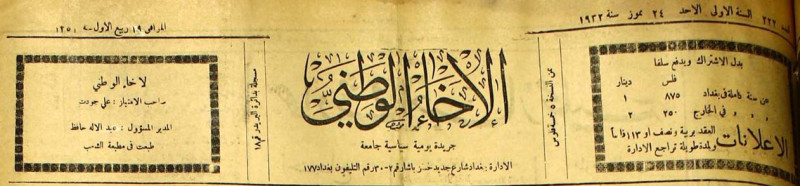 عدد ٢٢٢ السنة الاولى الاحد ٢٤ تموز سنة ١٩٣٢
الموافق ١٩ ربيع الاول سنة ١٣٥١
بدل الاشتراك ويدفع سلفا
فلس دينار
عن سنة كاملة في بغداد ٨٧٥ ١
« « في الخارج ٢٥٠ ٢
الاعلانات
العقد برية ونصف او ١٣
ولمدة طويلة تراجع الادارة
ثمن النسخة ٥ خمسة فلوس
الإخاء الوطني
جريدة يومية سياسية جامعة
الادارة : بغداد شارع جديد حسن باشا رقم ٢-٣٠ رقم التليفون بغداد ١٧٧
مسجلة بدائرة البريد رقم ١٨
لاخاء الوطني
صاحب الامتياز : علي جودت
المدير المسؤول : عبد الاله حافظ
طبعت في مطبعة الشعب